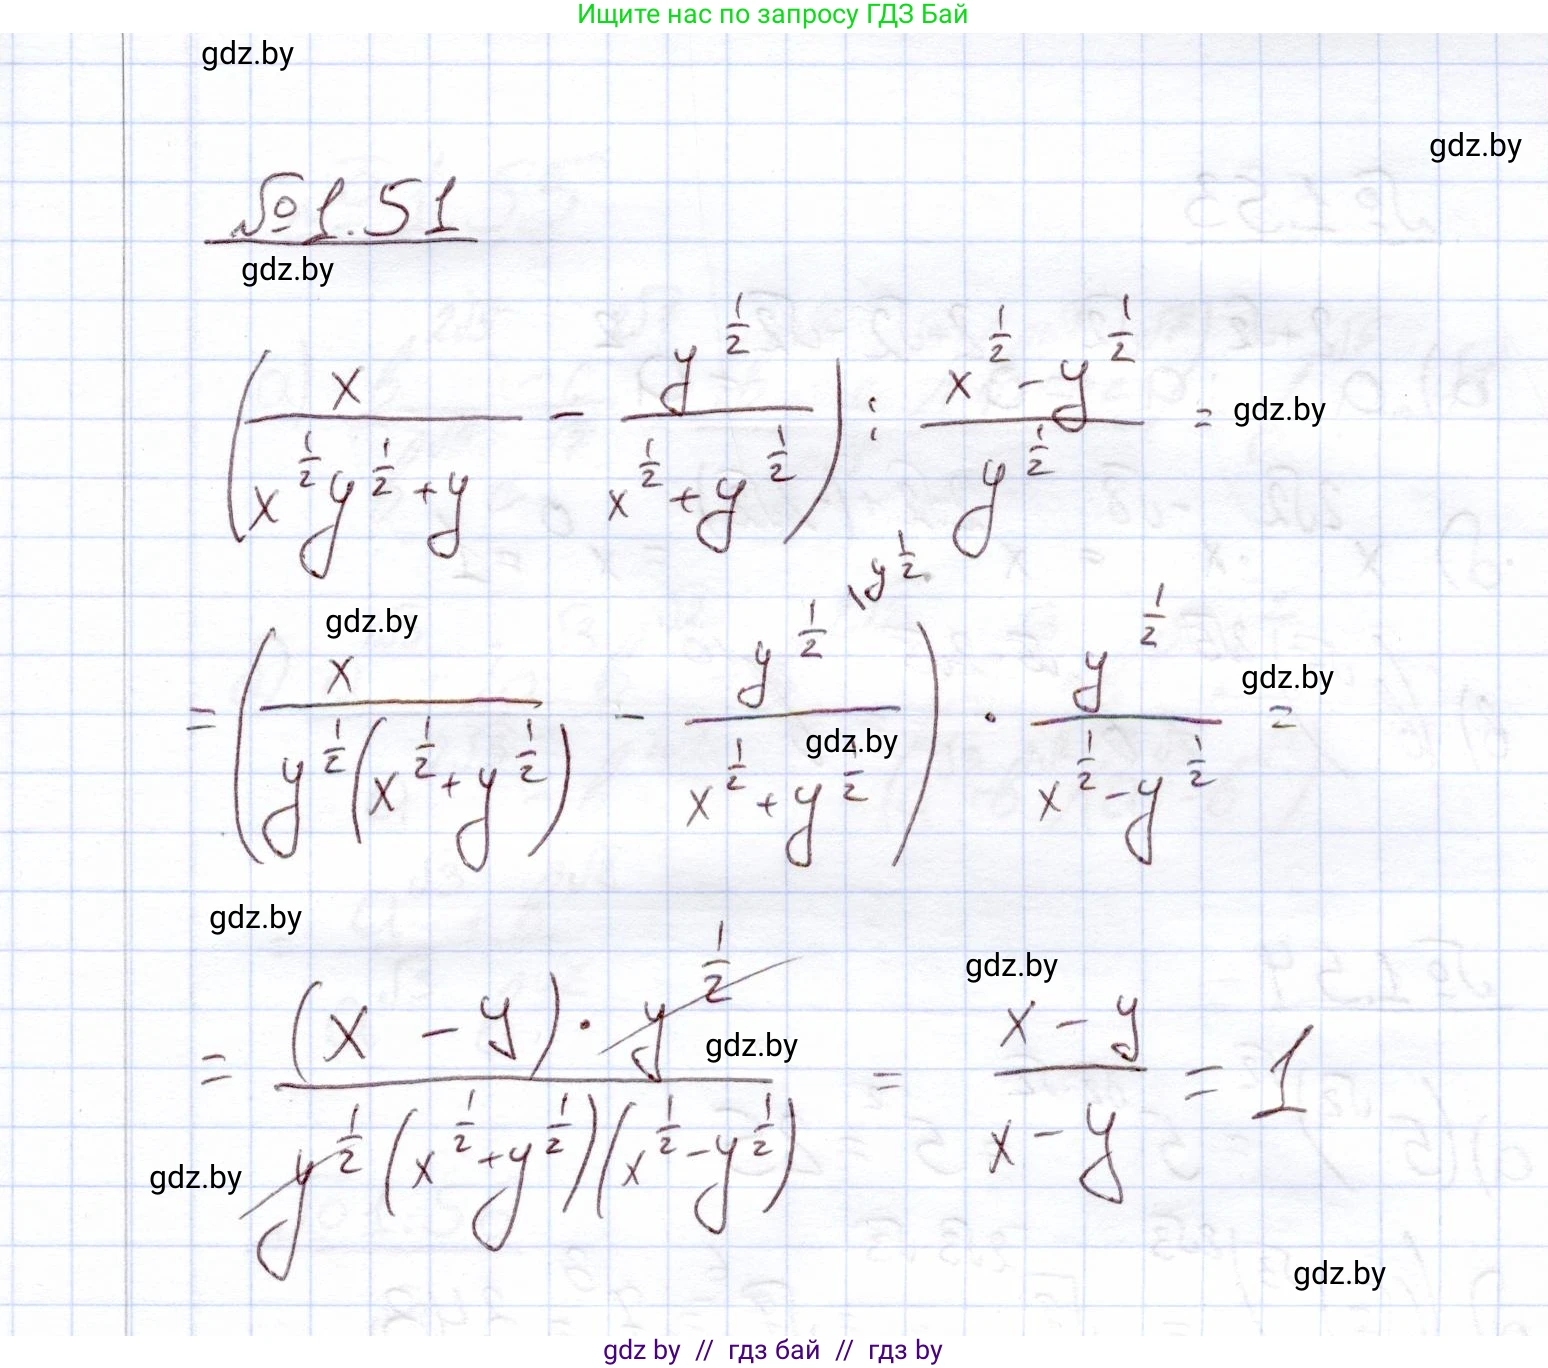 Ищите нас по запросу ГДЗ Бай
gdz.by
gdz.by
№1.51
gdz.by
(x/(x^(1/2)y^(1/2)+y) - y^(1/2)/(x^(1/2)+y^(1/2))) : (x^(1/2)-y^(1/2))/y^(1/2) = gdz.by
gdz.by
=(x/(y^(1/2)(x^(1/2)+y^(1/2))) - y^(1/2)\y^(1/2)/(x^(1/2)+y^(1/2))) · y^(1/2)/(x^(1/2)-y^(1/2)) =
gdz.by
gdz.by
gdz.by
gdz.by
= ((x - y)·y^(1/2))/(y^(1/2)(x^(1/2)+y^(1/2))(x^(1/2)-y^(1/2))) = (x-y)/(x-y) = 1
gdz.by
gdz.by
gdz.by
gdz by // гдз бай // гдз by